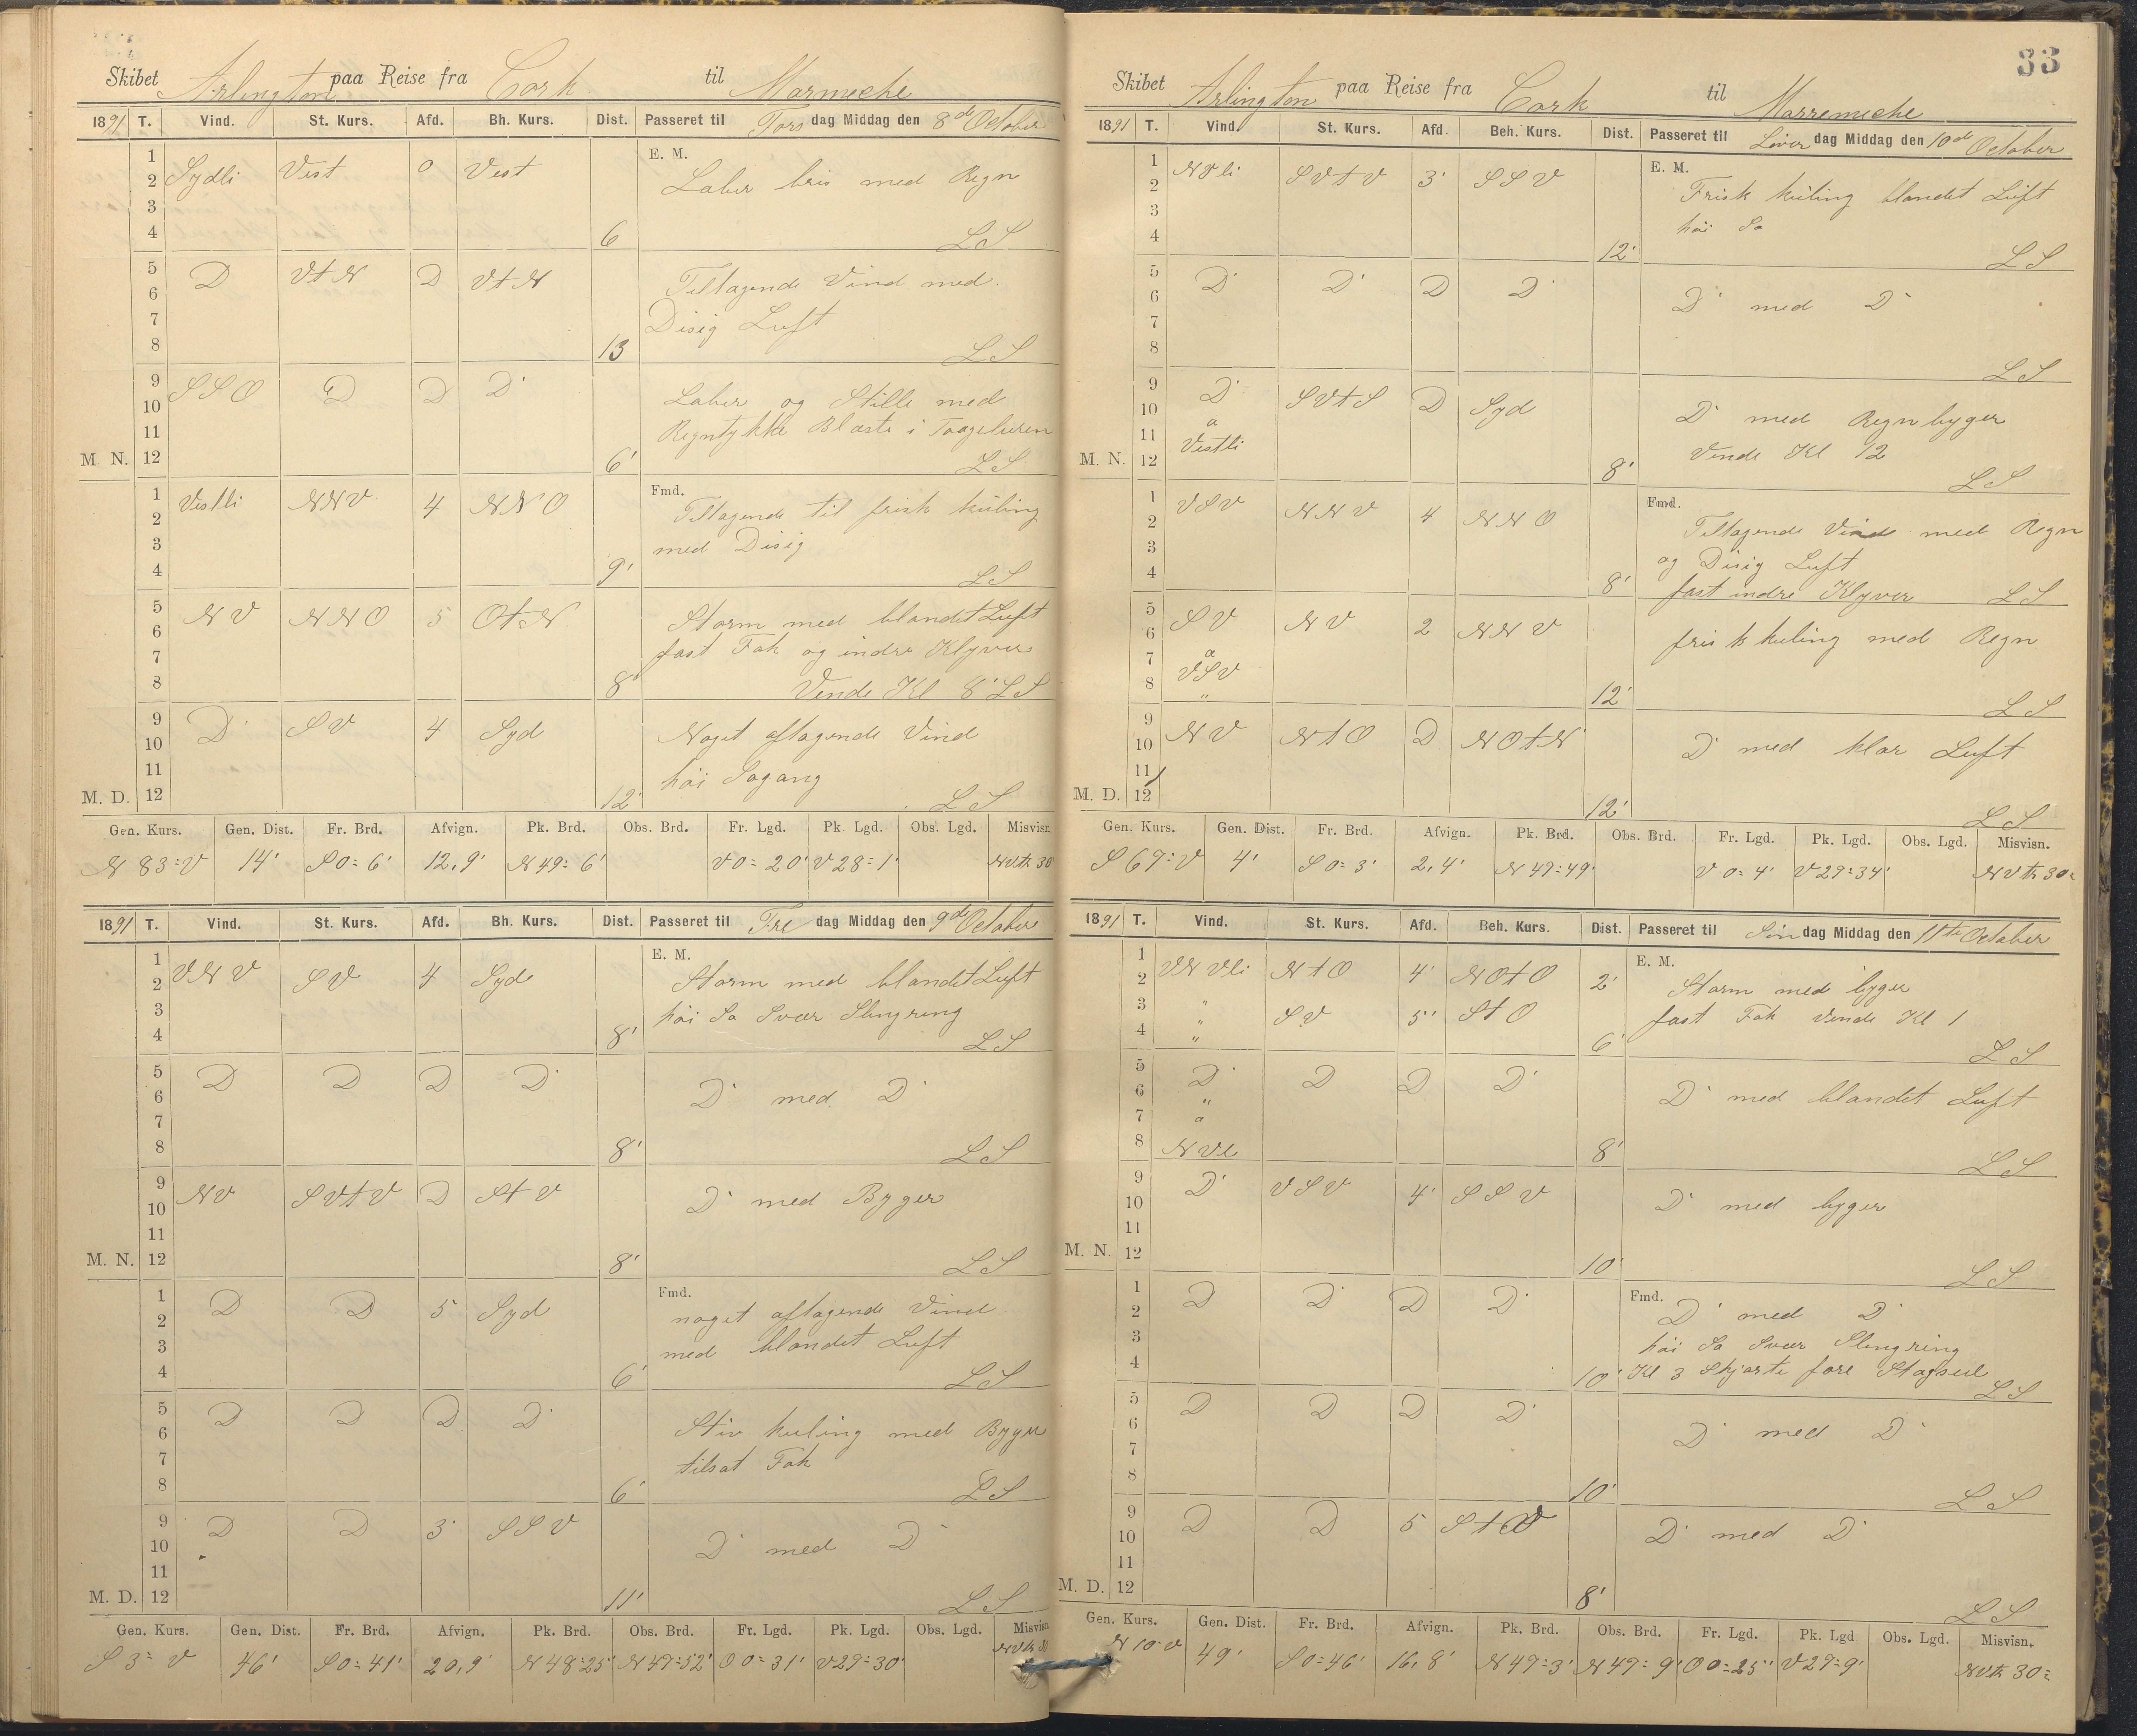 Skibet Arlington paa Reise fra Cork til Marmeche
1891 T. Vind. St. Kurs. Afd. Bh. Kurs. Dist. Passeret til Tors dag Middag den 8de October
E. M.
1 2 3 4 Sydli Vest 0 Vest 6 Laber bris med Regn
LS
5 6 7 8 D VtN D VtN 13 Tiltagende Vind med
Disig Luft
LS
9 10 11 12 SSO D D D 6' Laber og Stille med
Regntykke Blæste i Taageluren
M. N. LS
Fmd.
1 2 3 4 Vestli NNV 4 NNO 9' Tiltagende til frisk kuling
med Disig
LS
5 6 7 8 NV NNO 5 OtN 8' Storm med blandet Luft
fast Fok og indre Klyver
Vende Kl 8 LS
9 10 11 12 D SV 4 Syd 12' Noget aftagende Vind
høi Søgang
M. D. LS
Gen. Kurs. Gen. Dist. Fr. Brd. Afvign. Pk. Brd. Obs. Brd. Fr. Lgd. Pk. Lgd. Obs. Lgd. Misvisn.
N 83=V 14' S 0=6' 12,9' N 49=6' V 0=20' V 28=1' NVtr 30
1891 T. Vind. St. Kurs. Afd. Bh. Kurs. Dist. Passeret til Fre dag Middag den 9de October
E. M.
1 2 3 4 VNV SV 4 Syd 8' Storm med blandet Luft
høi Sø Svær Slingring
LS
5 6 7 8 D D D D 8' D med D
LS
9 10 11 12 NV SVtV D StV 8' D med Byger
M. N. LS
Fmd.
1 2 3 4 D D 5 Syd 6' noget aftagende Vind
med blandet Luft
LS
5 6 7 8 D D D D 6' Stiv kuling med Byger
tilsat Fok
LS
9 10 11 12 D D 3' SSV 11' D med D
M. D. LS
Gen. Kurs. Gen. Dist. Fr. Brd. Afvign. Pk. Brd. Obs. Brd. Fr. Lgd. Pk. Lgd. Obs. Lgd. Misvisn.
S 3=V 46' S 0=41' 20,9' N 48=25' N 49=52' O 0=31' V 29=30' NVtr 30
33
Skibet Arlington paa Reise fra Cork til Marremeche
1891 T. Vind. St. Kurs. Afd. Beh. Kurs. Dist. Passeret til Løver dag Middag den 10de October
E. M.
1 2 3 4 NVli SVtV 3' SSV 12' Frisk kuling blandet Luft
høi Sø
LS
5 6 7 8 D D D D D med D
LS
9 10 11 12 D a Vestli SVtS D Syd 8' D med Regnbyger
Vende Kl 12
M. N. LS
Fmd.
1 2 3 4 VSV NNV 4 NNO 8' Tiltagende Vind med Regn
og Disig Luft
fast indre Klyver LS
5 6 7 8 SV a VSV " NV 2 NNV 12' frisk kuling med Regn
LS
9 10 11 12 NV NtO D NOtN 12' D med klar Luft
M. D. LS
Gen. Kurs. Gen. Dist. Fr. Brd. Afvign. Pk. Brd. Obs. Brd. Fr. Lgd. Pk. Lgd. Obs. Lgd. Misvisn.
S 67=V 4' S 0=3' 2,4' N 49=49' V 0=4' V 29=34' NVtr 30=
1891 T. Vind. St. Kurs. Afd. Beh. Kurs. Dist. Passeret til Søn dag Middag den 11te October
E. M.
1 2 VNVli NtO 4' NOtO 2' Storm med byger
3 4 " SV 5' StO 6' fast Fok Vende Kl 1
LS
5 6 7 8 D " a NVl D D D 8' D med blandet Luft
LS
9 10 11 12 D VSV 4' SSV 10' D med byger
M. N. LS
Fmd.
1 2 3 4 D D D D 10' D med D
høi Sø Svær Slingring
Kl 3 Skjørte fore Stagseil LS
5 6 7 8 D D D D 10' D med D
LS
9 10 11 12 D D 5 StV 8' D med D
M. D. LS
Gen. Kurs. Gen. Dist. Fr. Brd. Afvign. Pk. Brd. Obs. Brd. Fr. Lgd. Pk. Lgd Obs. Lgd. Misvisn.
49' S 0=46' 16,8' N 49=3' N 49=9' O 0=25' V 29=9' NVtr 30=